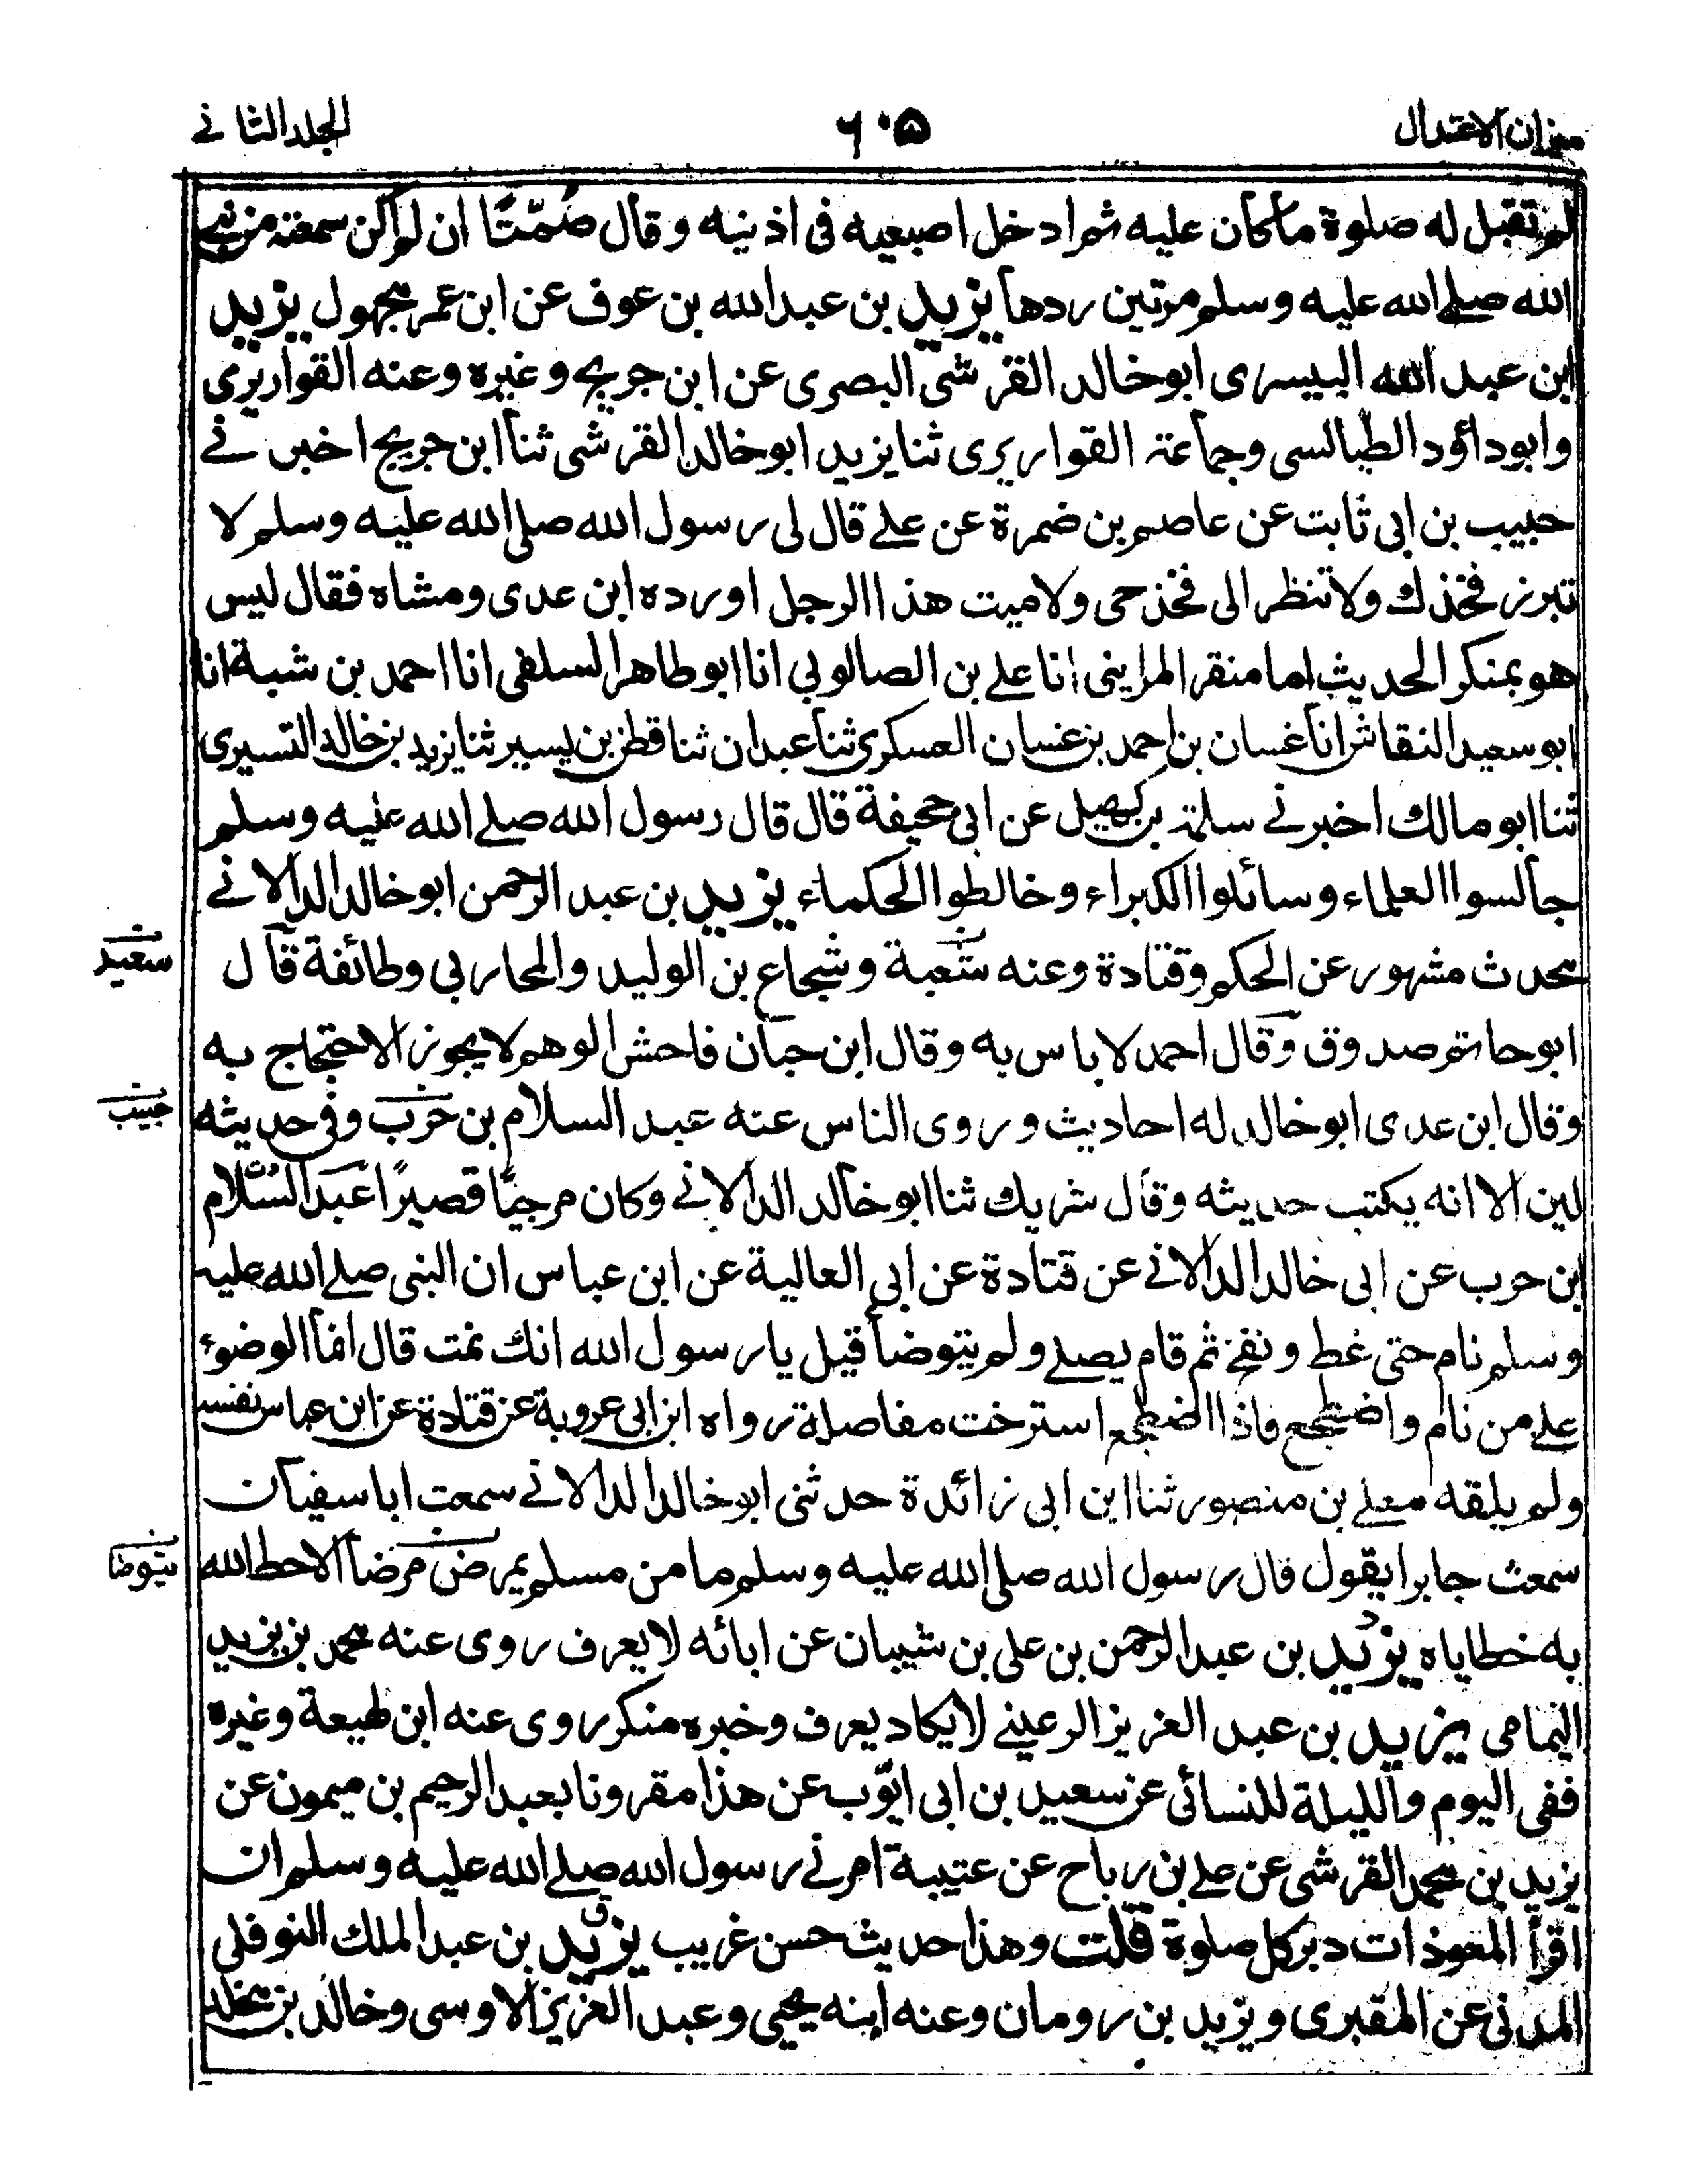 ميزان الاعتدال
٦٠٥
الجلد الثاني
لم تقبل له صلوة ما كان عليه ثم ادخل اصبعيه في اذنيه وقال صُمّتًا ان لم اكن سمعته من نبي
الله صلے الله عليه وسلم مرتين رددها يزيد بن عبد الله بن عوف عن ابن عمر مجهول يزيد
ابن عبد الله البيسرى ابو خالد القرشى البصرى عن ابن جريج وغيره وعنه القواريرى
وابو داؤد الطيالسى وجماعة القواريرى ثنا يزيد ابو خالد القرشى ثنا ابن جريج اخبرني
حبيب بن ابى ثابت عن عاصم بن ضمرة عن علے قال لى رسول الله صلى الله عليه وسلم لا
تبرز فخذك ولا تنظر الى فخذ حى ولا ميت هذا الرجل اورده ابن عدى ومشاه فقال ليس
هو بمنكر الحديث اما منقر المزاينى انا علے بن الصالوبي انا ابو طاهر السلفى انا احمد بن شبة انا
ابو سعيد النقاش انا غسان بن احمد بن غسان العسكرى ثنا عبدان ثنا قطن بن يسير ثنا يزيد بن خالد التسيرى
ثنا ابو مالك اخبرنے سلمة بن كهيل عن ابى جحيفة قال قال رسول الله صلے الله عليه وسلم
جالسوا العلماء وسائلوا الكبراء وخالطوا الحكماء يزيد بن عبد الرحمن ابو خالد الدالانے
محدث مشهور عن الحكم وقتادة وعنه شعبة وشجاع بن الوليد والمحاربى وطائفة قال
سعيد
ابو حاتم صدوق وقال احمد لا باس به وقال ابن حبان فاحش الوهم لا يجوز الاحتجاج به
وقال ابن عدى ابو خالد له احاديث وروى الناس عنه عبد السلام بن حرب وفى حديثه
حبيب
لين الا انه يكتب حديثه وقال شريك ثنا ابو خالد الدالانے وكان مرجيًا قصيرًا عبد السّلام
ابن حرب عن ابى خالد الدالانے عن قتادة عن ابي العالية عن ابن عباس ان النبى صلے الله عليه
وسلم نام حتى غط ونفخ ثم قام يصلے ولم يتوضأ قيل يا رسول الله انك نمت قال انما الوضوء
علے من نام واضطجع فاذا اضطجع استرخت مفاصله رواه ابن ابى عروبة عن قتادة عن ابن عباس نفسه
ولم يلقه معلے بن منصور ثنا ابن ابى زائدة حدثنى ابو خالد الدالانے سمعت ابا سفيان
سمعت جابرا يقول قال رسول الله صلى الله عليه وسلم ما من مسلم يمرض مرضا الا حط الله
يتوضا
به خطاياه يزيد بن عبد الرحمن بن على بن شيبان عن ابائه لا يعرف روى عنه محمد بن يزيد
اليمامى يزيد بن عبد العزيز الرعينے لا يكاد يعرف وخبره منكر روى عنه ابن لهيعة وغيره
ففى اليوم والليلة للنسائى عن سعيد بن ابى ايّوب عن هذا مقرونا بعبد الرحيم بن ميمون عن
يزيد بن محمد القرشى عن علے بن رباح عن عتيبة امرنے رسول الله صلے الله عليه وسلم ان
اقرأ المعوذات دبر كل صلوة قلت وهذا حديث حسن غريب يزيد بن عبد الملك النوفلى
المدنى عن المقبرى ويزيد بن رومان وعنه ابنه يحيى وعبد العزيز الاوسى وخالد بن مخلد